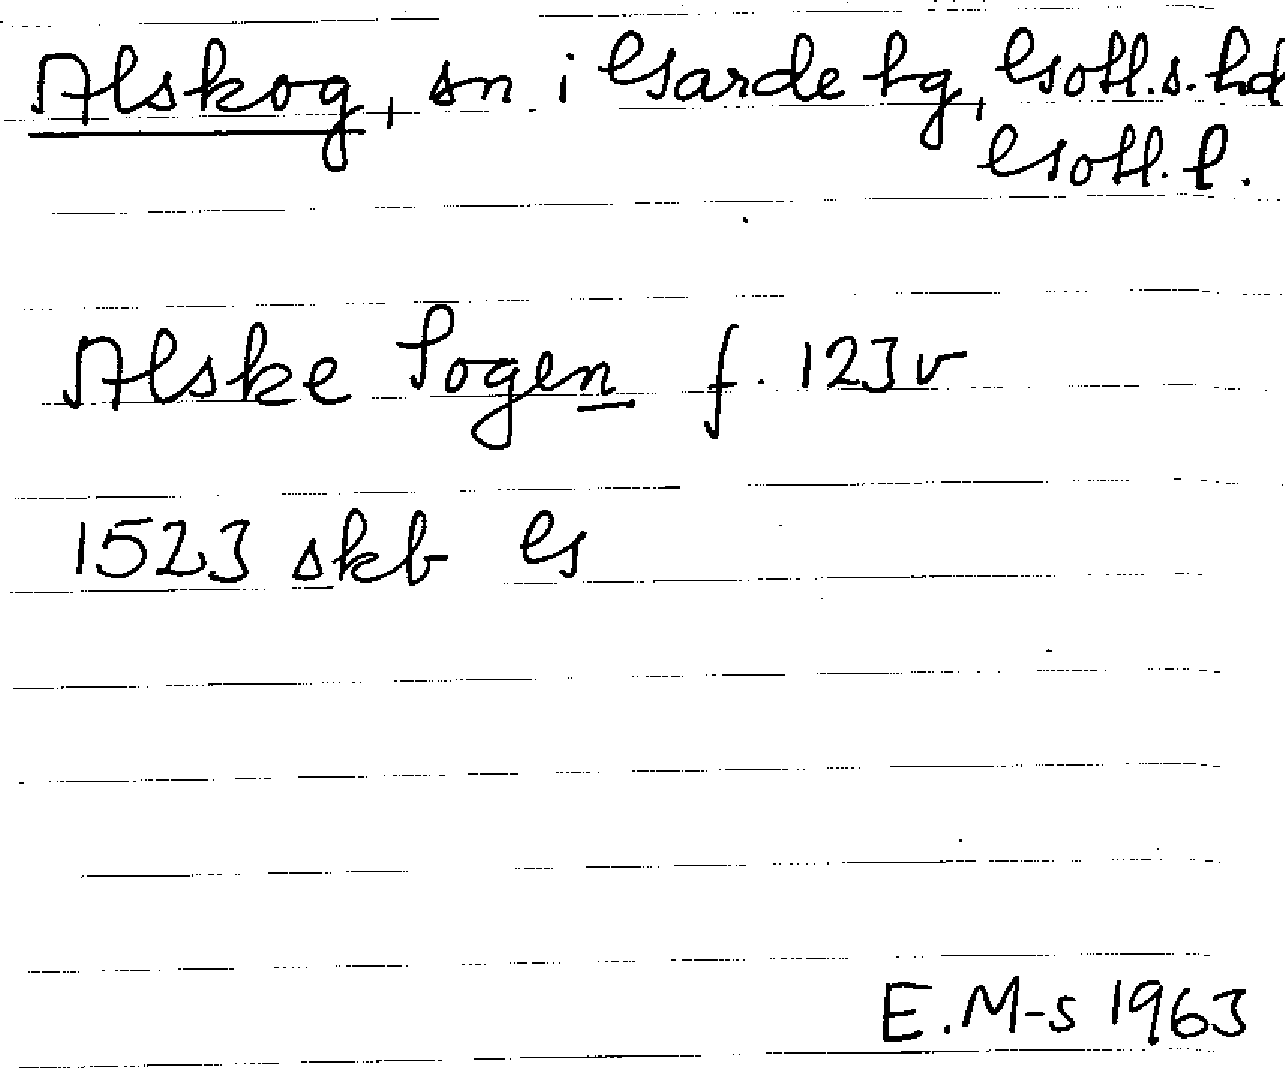 Alskog, sn i Garde tg, Gotl.s. hd
Gotl. l.
Alske Sogen f. 123v
1523 skb G
E.M-s 1963